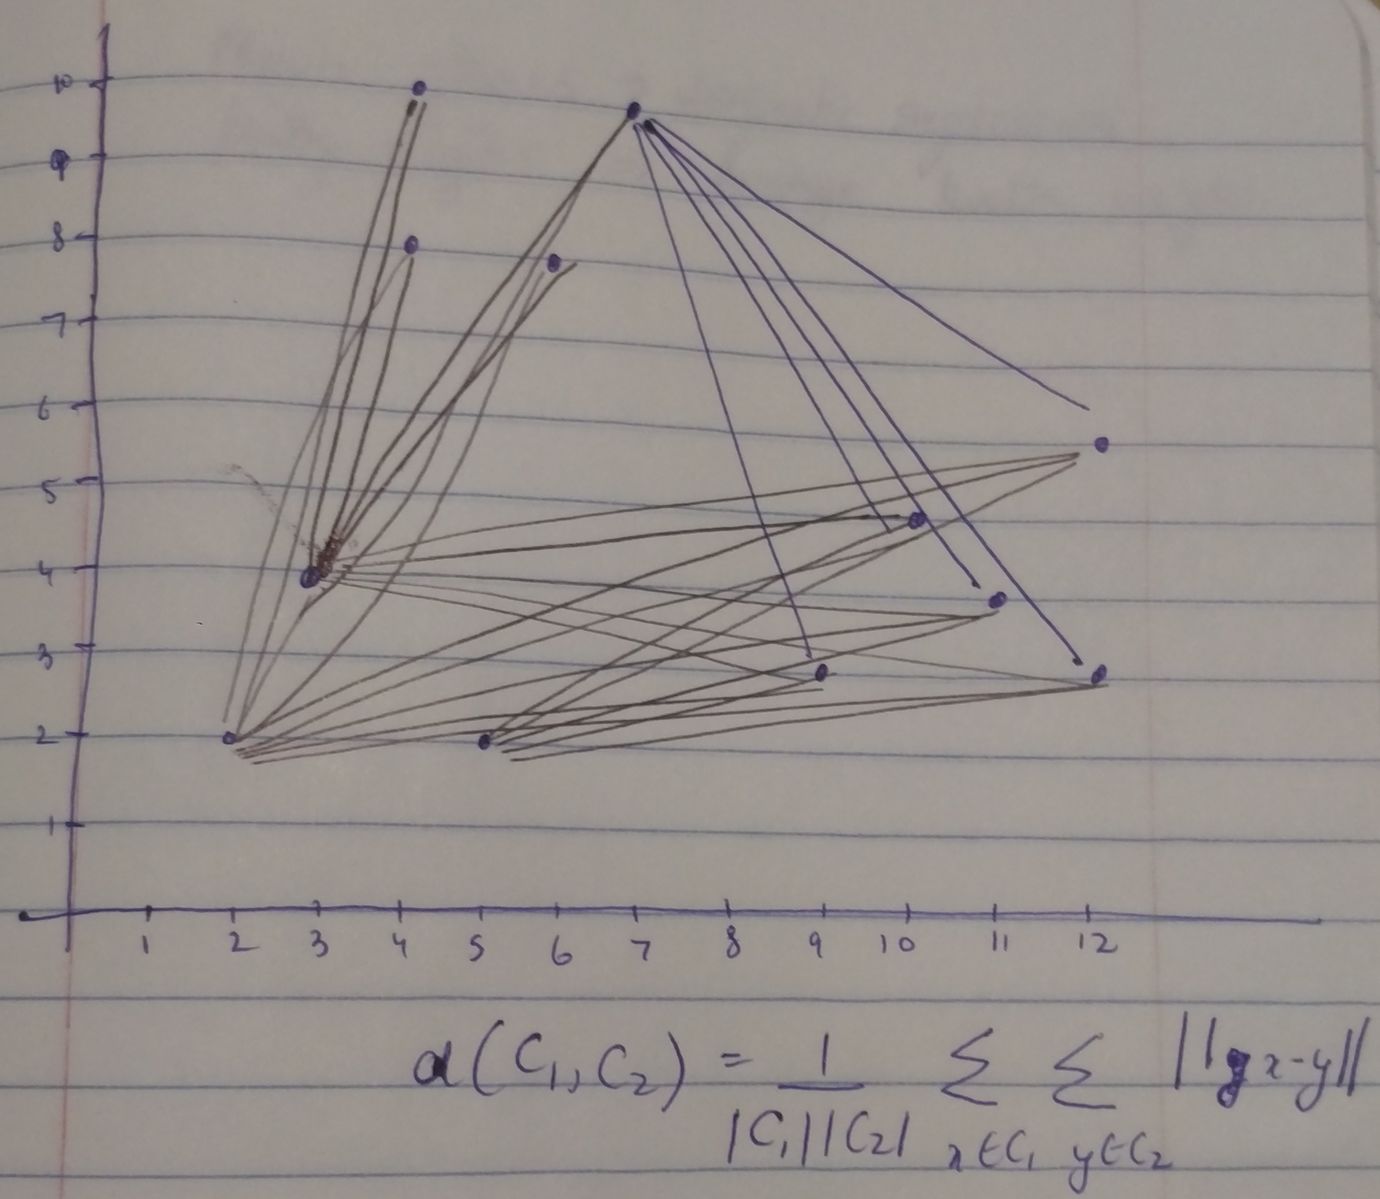 10
9
8
7
6
5
4
3
2
1
1 2 3 4 5 6 7 8 9 10 11 12
d(C₁, C₂) = 1 / |C₁||C₂| Σ x∈C₁ Σ y∈C₂ ||x-y||